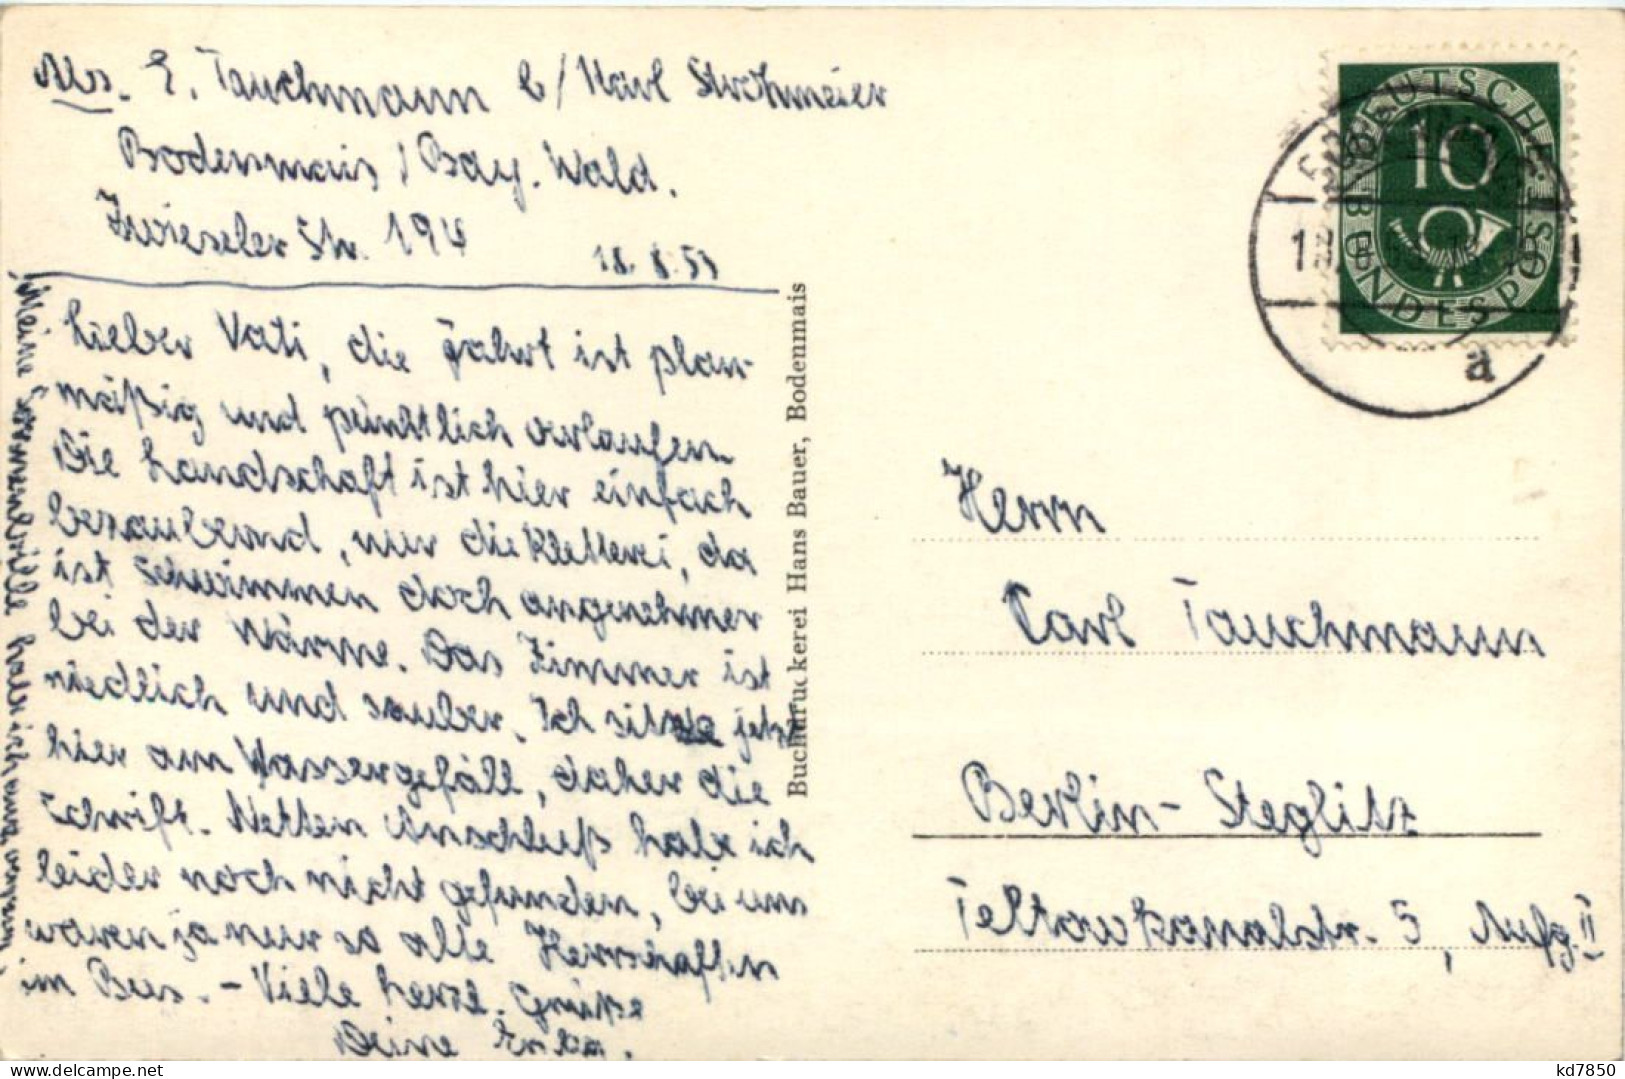 Abs. E. Tauchmann b/ Karl Strohmeier
Bodenmais / Bay. Wald.
Zwieseler Str. 194
18.8.53
Lieber Vati, die Fahrt ist plan-
mäßig und pünktlich verlaufen.
Die Landschaft ist hier einfach
bezaubernd, nur die Kletterei, da
ist Schwimmen doch angenehmer
bei der Wärme. Das Zimmer ist
niedlich und sauber. Ich sitze jetzt
hier am Wassergefäll, daher die
Schrift. Netten Anschluß habe ich
leider noch nicht gefunden, bei uns
waren ja nur so alle Herrschaften
im Bus. - Viele herzl. Grüße
Deine
Meine Sonnenbrille habe ich
Buchdruckerei Hans Bauer, Bodenmais
DEUTSCHE BUNDESPOST
10
a
Herrn
Carl Tauchmann
Berlin-Steglitz
Teltowkanalstr. 5, Aufg. II
kd7850